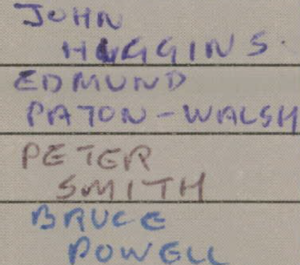 JOHN
HUGGINS.
EDMUND
PATON-WALSH
PETER
SMITH
BRUCE
POWELL